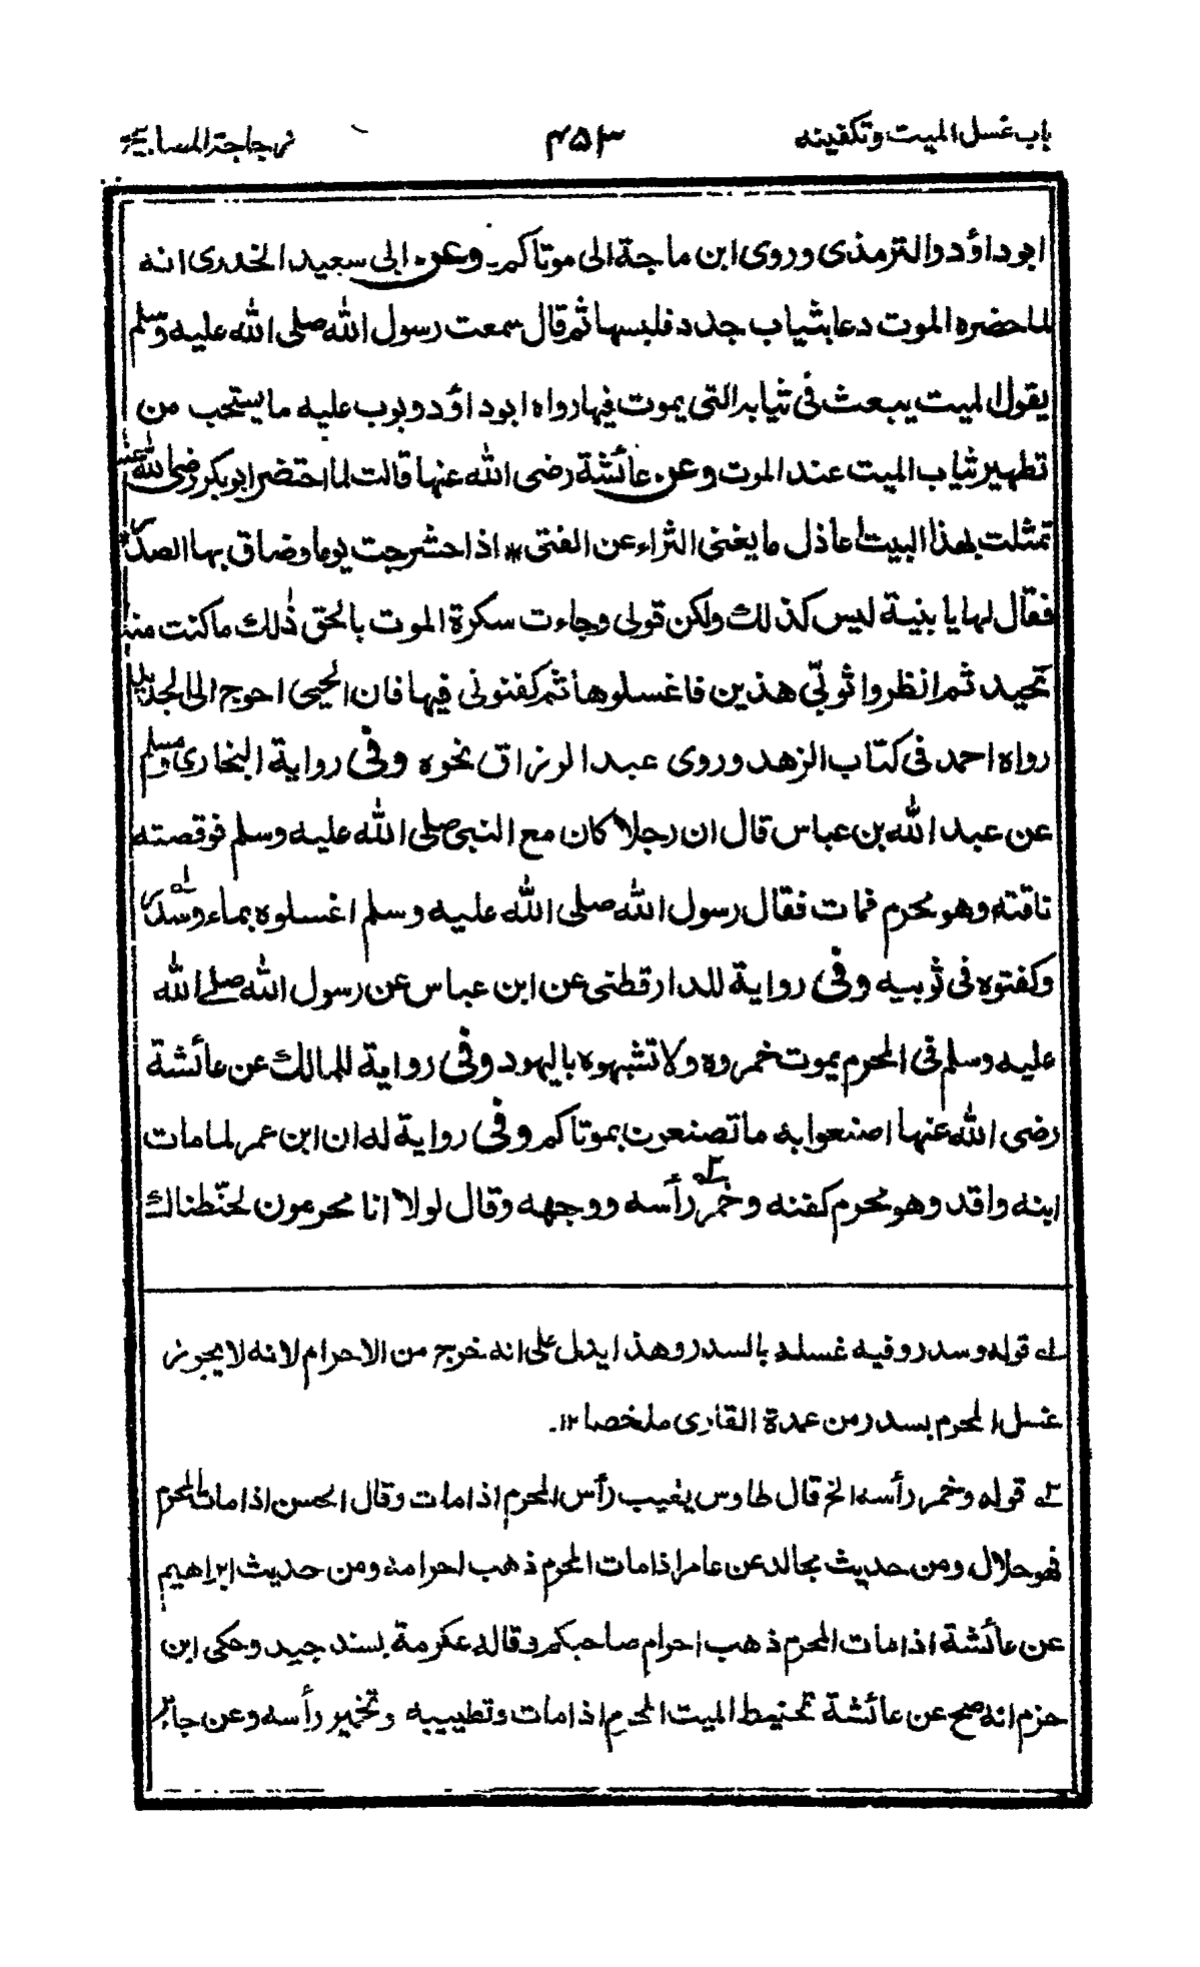 باب غسل الميت وتكفينه ۴۵۳ زجاجة المصابيح
ابوداؤد والترمذى وروى ابن ماجة الى موتاكم۔ وعن ابى سعيد الخدرى انه
لما حضره الموت دعا بثياب جدد فلبسها ثم قال سمعت رسول الله صلى الله عليه وسلم
يقول الميت يبعث فى ثيابه التى يموت فيها رواه ابوداؤد وبوب عليه ما يستحب من
تطهير ثياب الميت عند الموت وعن عائشة رضى الله عنها قالت لما احتضر ابوبكر رضى الله عنه
تمثلت بهذا البيت اعاذل ما يغنى الثراء عن الفتى * اذا حشرجت يوما وضاق بها الصدر
فقال لها يا بنية ليس كذلك ولكن قولى وجاءت سكرة الموت بالحق ذٰلك ما كنت منه
تحيد ثم انظروا ثوبىّ هذين فاغسلوهما ثم كفنونى فيها فان الحيى احوج الى الجديد
رواه احمد فى كتاب الزهد وروى عبد الرزاق نحوه وفى رواية البخارى ومسلم
عن عبد الله بن عباس قال ان رجلا كان مع النبى صلى الله عليه وسلم فوقصته
ناقته وهو محرم فمات فقال رسول الله صلى الله عليه وسلم اغسلوه بماء وسدر ۱؎
وكفنوه فى ثوبيه وفى رواية للدارقطنى عن ابن عباس عن رسول الله صلے الله
عليه وسلم فى المحرم يموت خمروه ولا تشبهوه باليهود وفى رواية للمالك عن عائشة
رضى الله عنها اصنعوا به ما تصنعون بموتاكم وفى رواية له ان ابن عمر لما مات
ابنه واقد وهو محرم كفنه وخمر ۲؎ رأسه ووجهه وقال لولا انا محرمون لحنّطناك
۱؎ قوله وسدر وفيه غسله بالسدر وهذا يدل على انه خرج من الاحرام لانه لا يجوز
غسل المحرم بسدر من عمدة القارى ملخصا ۱۲.
۲؎ قوله وخمر رأسه الخ قال طاوس يغيب رأس المحرم اذا مات وقال الحسن اذا مات المحرم
فهو حلال ومن حديث مجالد عن عامر اذا مات المحرم ذهب احرامه ومن حديث ابراهيم
عن عائشة اذا مات المحرم ذهب احرام صاحبكم وقاله عكرمة بسند جيد وحكى ابن
حزم انه صح عن عائشة تحنيط الميت المحرم اذا مات وتطييبه وتخمير رأسه وعن جابر